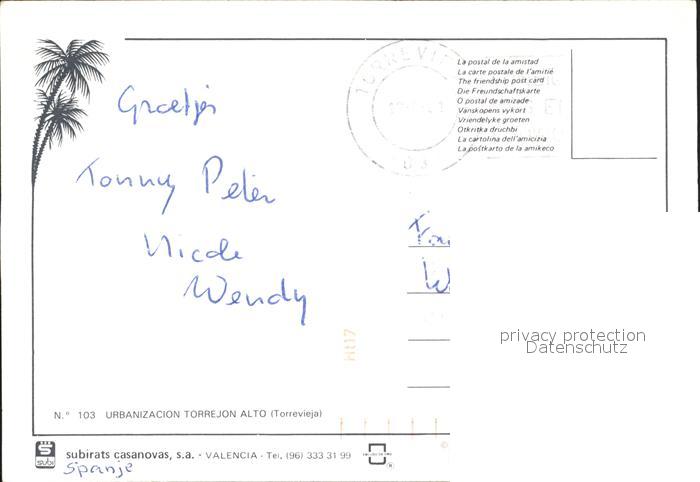 Groetjes
Tonny Peter
Nicole
Wendy
TORREVIE
03
La postal de la amistad
La carte postale de l'amitié
The friendship post card
Die Freundschaftskarte
O postal de amizade
Vänskapens vykort
Vriendelyke groeten
Otkritka druchbi
La cartolina dell'amicizia
La poŝtkarto de la amikeco
Fam
W
privacy protection
Datenschutz
N.° 103 URBANIZACION TORREJON ALTO (Torrevieja)
subi
subirats casanovas, s.a. - VALENCIA - Tel. (96) 333 31 99
®
Spanje